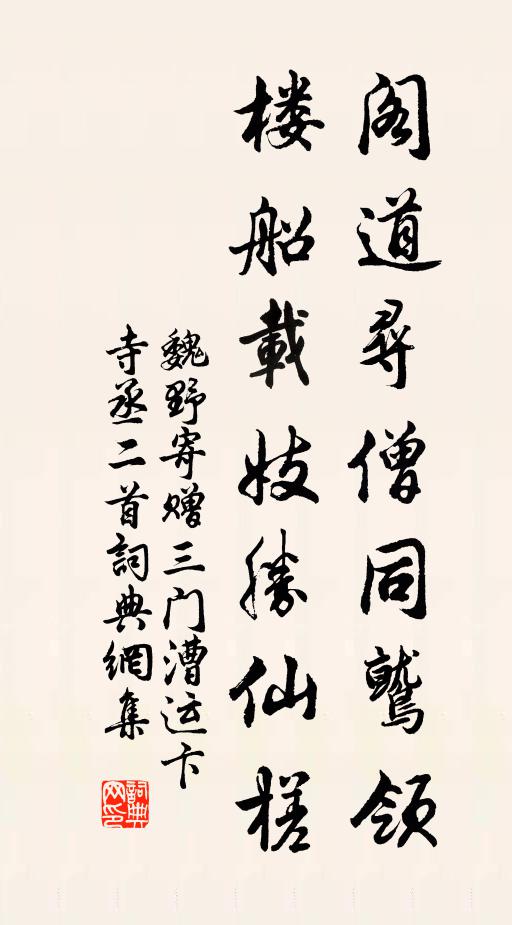 阁道尋僧同鷲领
楼船載妓勝仙槎
魏野寄赠三门漕运卞
寺丞二首詞典網集
詞典网印